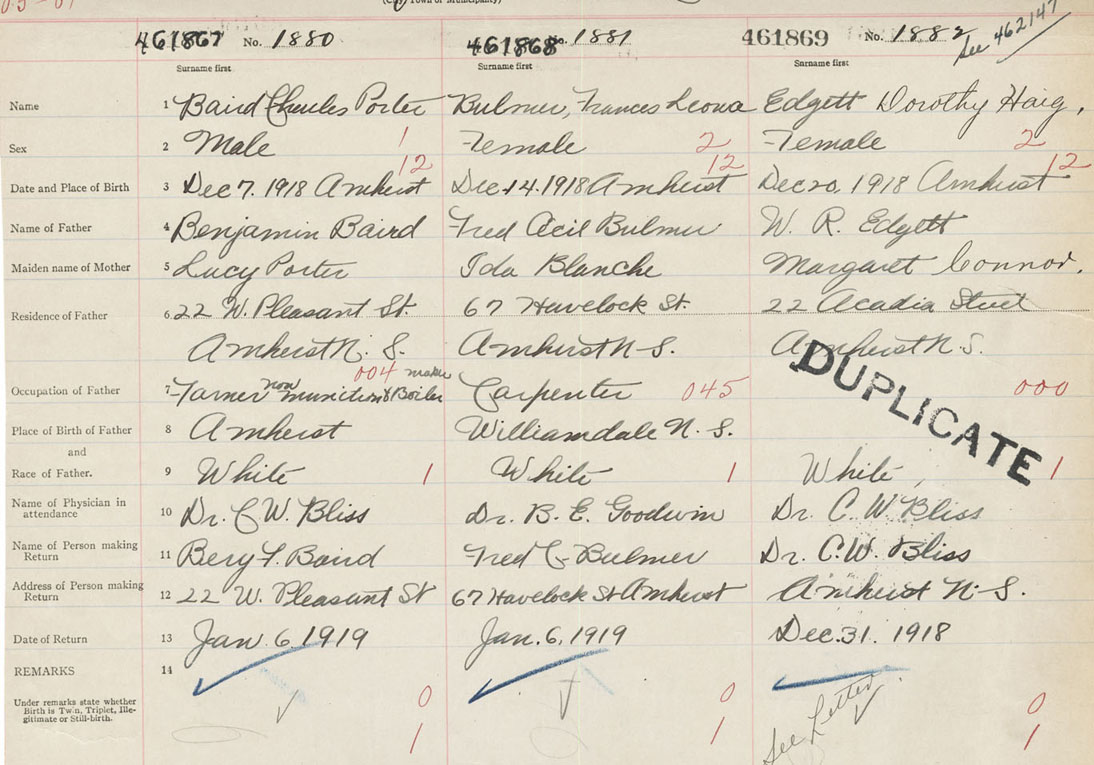 (City Town or Municipality)
461867 No. 1880 461868 No. 1881 461869 No. 1882 See 462147
Surname first Surname first Surname first
Name 1 Baird Charles Porter Bulmer, Frances Leona Edgett Dorothy Haig,
Sex 2 Male 1 Female 2 Female 2
12 12 12
Date and Place of Birth 3 Dec 7. 1918 Amherst Dec 14. 1918 Amherst Dec 20, 1918 Amherst
Name of Father 4 Benjamin Baird Fred Acil Bulmer W. R. Edgett
Maiden name of Mother 5 Lucy Porter Ida Blanche Margaret Connor.
Residence of Father 6 22 W. Pleasant St. 67 Havelock St. 22 Acadia Street
Amherst N. S. Amherst N-S. Amherst N-S.
DUPLICATE
004 maker
Occupation of Father 7 Farmer now munition & Boiler Carpenter 045 000
Place of Birth of Father 8 Amherst Williamdale N. S.
and
Race of Father. 9 White 1 White 1 White, 1
Name of Physician in attendance 10 Dr. C W. Bliss Dr. B. E. Goodwin Dr. C. W. Bliss
Name of Person making Return 11 Benj F. Baird Fred C Bulmer Dr. C.W. Bliss
Address of Person making Return 12 22 W. Pleasant St 67 Havelock St Amherst Amherst N-S.
Date of Return 13 Jan. 6. 1919 Jan. 6, 1919 Dec. 31. 1918
REMARKS 14
Under remarks state whether
Birth is Twin, Triplet, Ille-
gitimate or Still-birth.
0 0 0
1 1 1
See Letter